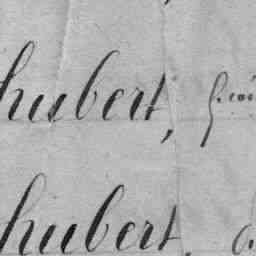 hubert,
hubert,